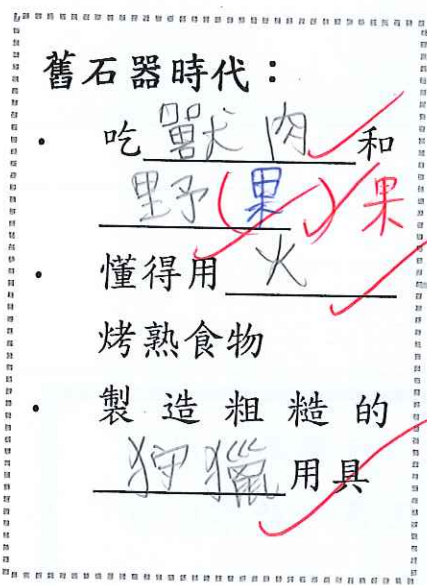 舊石器時代：
• 吃獸肉和
野(果) 果
• 懂得用火
烤熟食物
• 製造粗糙的
狩獵用具